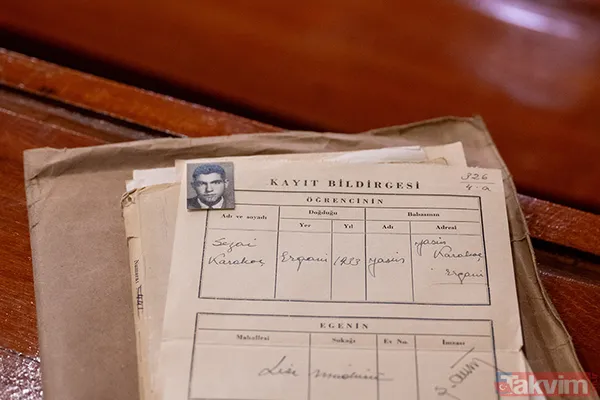 KAYIT BİLDİRGESİ
326
4-a
ÖĞRENCİNİN
Adı ve soyadı
Doğduğu
Babasının
Yer
Yıl
Adı
Adresi
Sezai
Karakoç
Ergani
1933
Yasin
Yasin
Karakoç
Ergani
EGENİN
Mahallesi
Sokağı
Ev No.
İmzası
Lise Müdürü
Numara
takvim